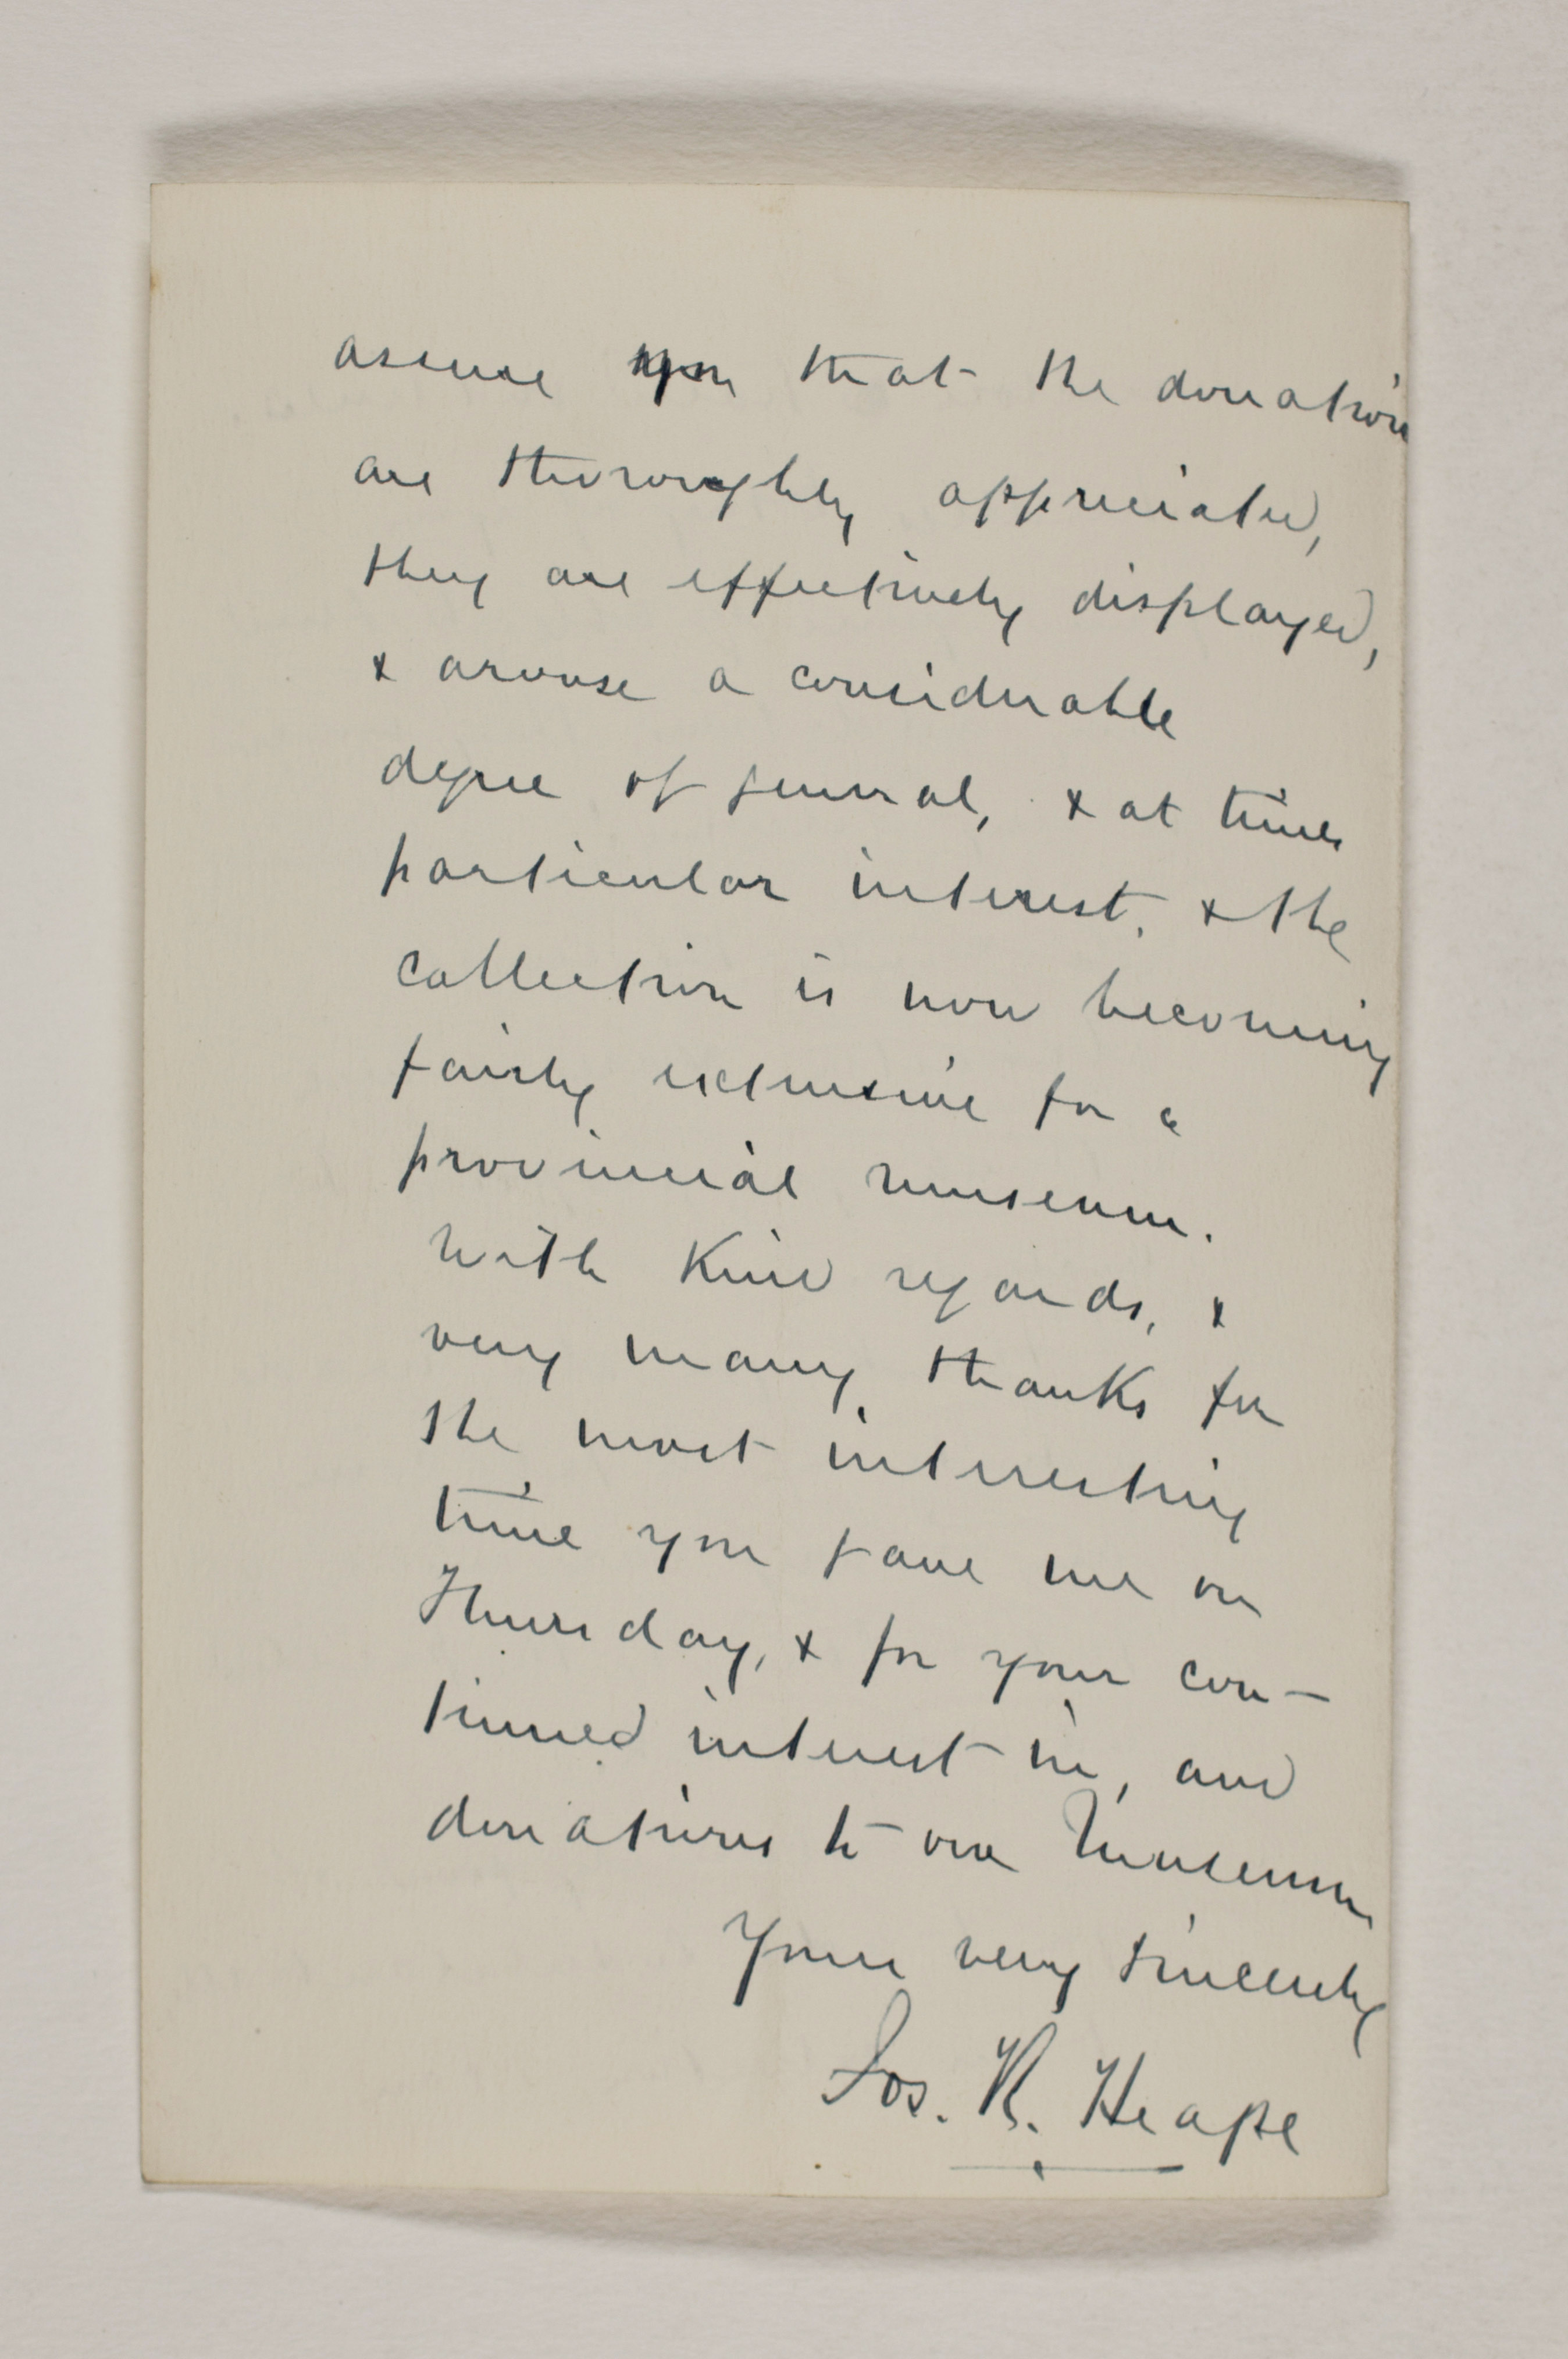 assure you that the donations
are thoroughly appreciated,
they are effectively displayed,
& arouse a considerable
degree of general, & at times
particular interest, & the
collection is now becoming
fairly extensive for a
provincial museum.
With kind regards, &
very many thanks for
the most interesting
time you gave me on
Thursday, & for your con-
tinued interest in, and
donations to our Museum
Yours very sincerely
Jos. R. Heape